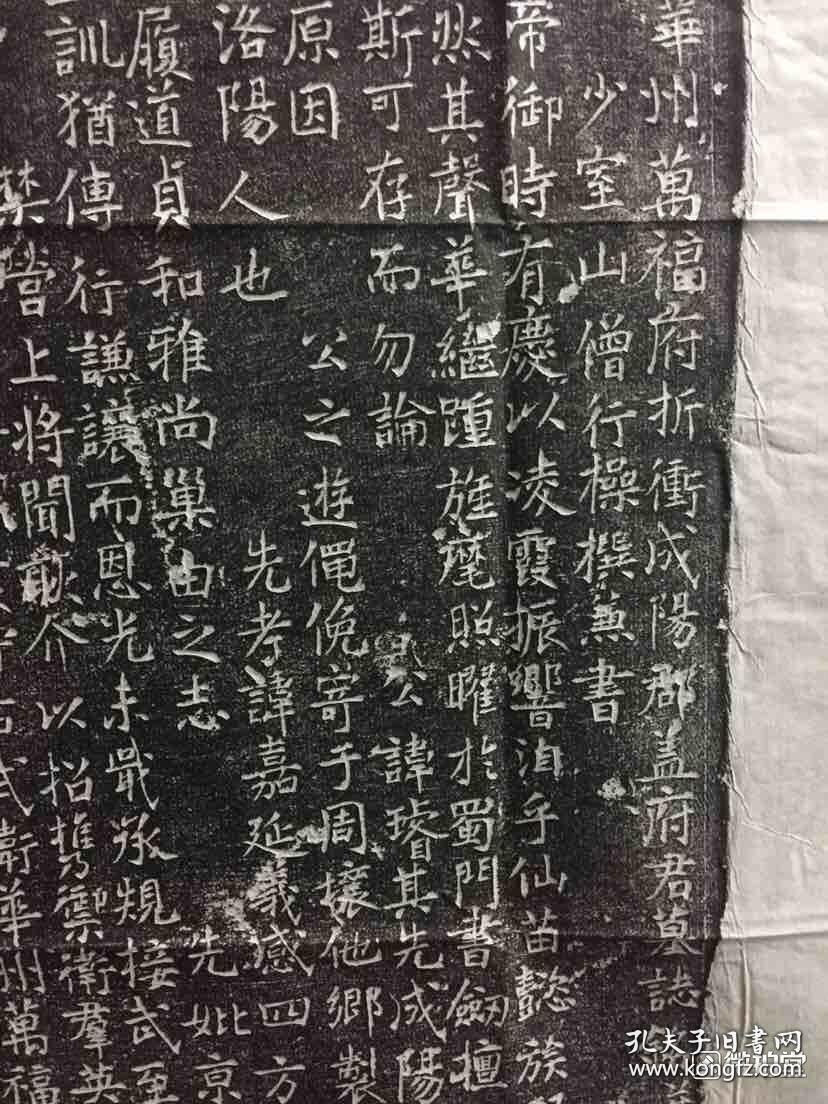 華州萬福府折衝咸陽郡蓋府君墓誌
少室山僧行操撰兼書
帝御時有慶以凌霞振響洎乎仙苗懿族
然其聲華繼踵旌麾照曜於蜀門書劒檀
斯可存而勿論 公諱璿其先咸陽
原因 公之遊僶俛寄于周壤他鄉製
洛陽人也 先考諱嘉延義感四方
履道貞和雅尚巢由之志 先妣京
訓猶傳行謙讓而恩光未戢承規接武至
禁營上將聞 以招携禦衛羣英
武衛華州萬福
孔夫子旧书网
www.kongfz.com